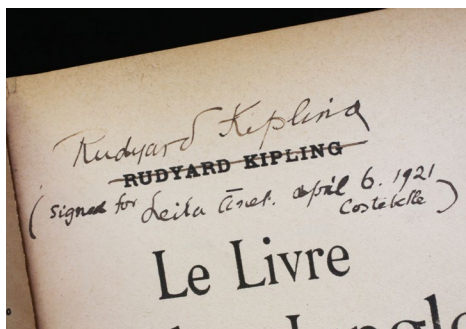 Rudyard Kipling
RUDYARD KIPLING
(signed for Leila . april 6. 1921
Costebelle)
Le Livre
Jungle